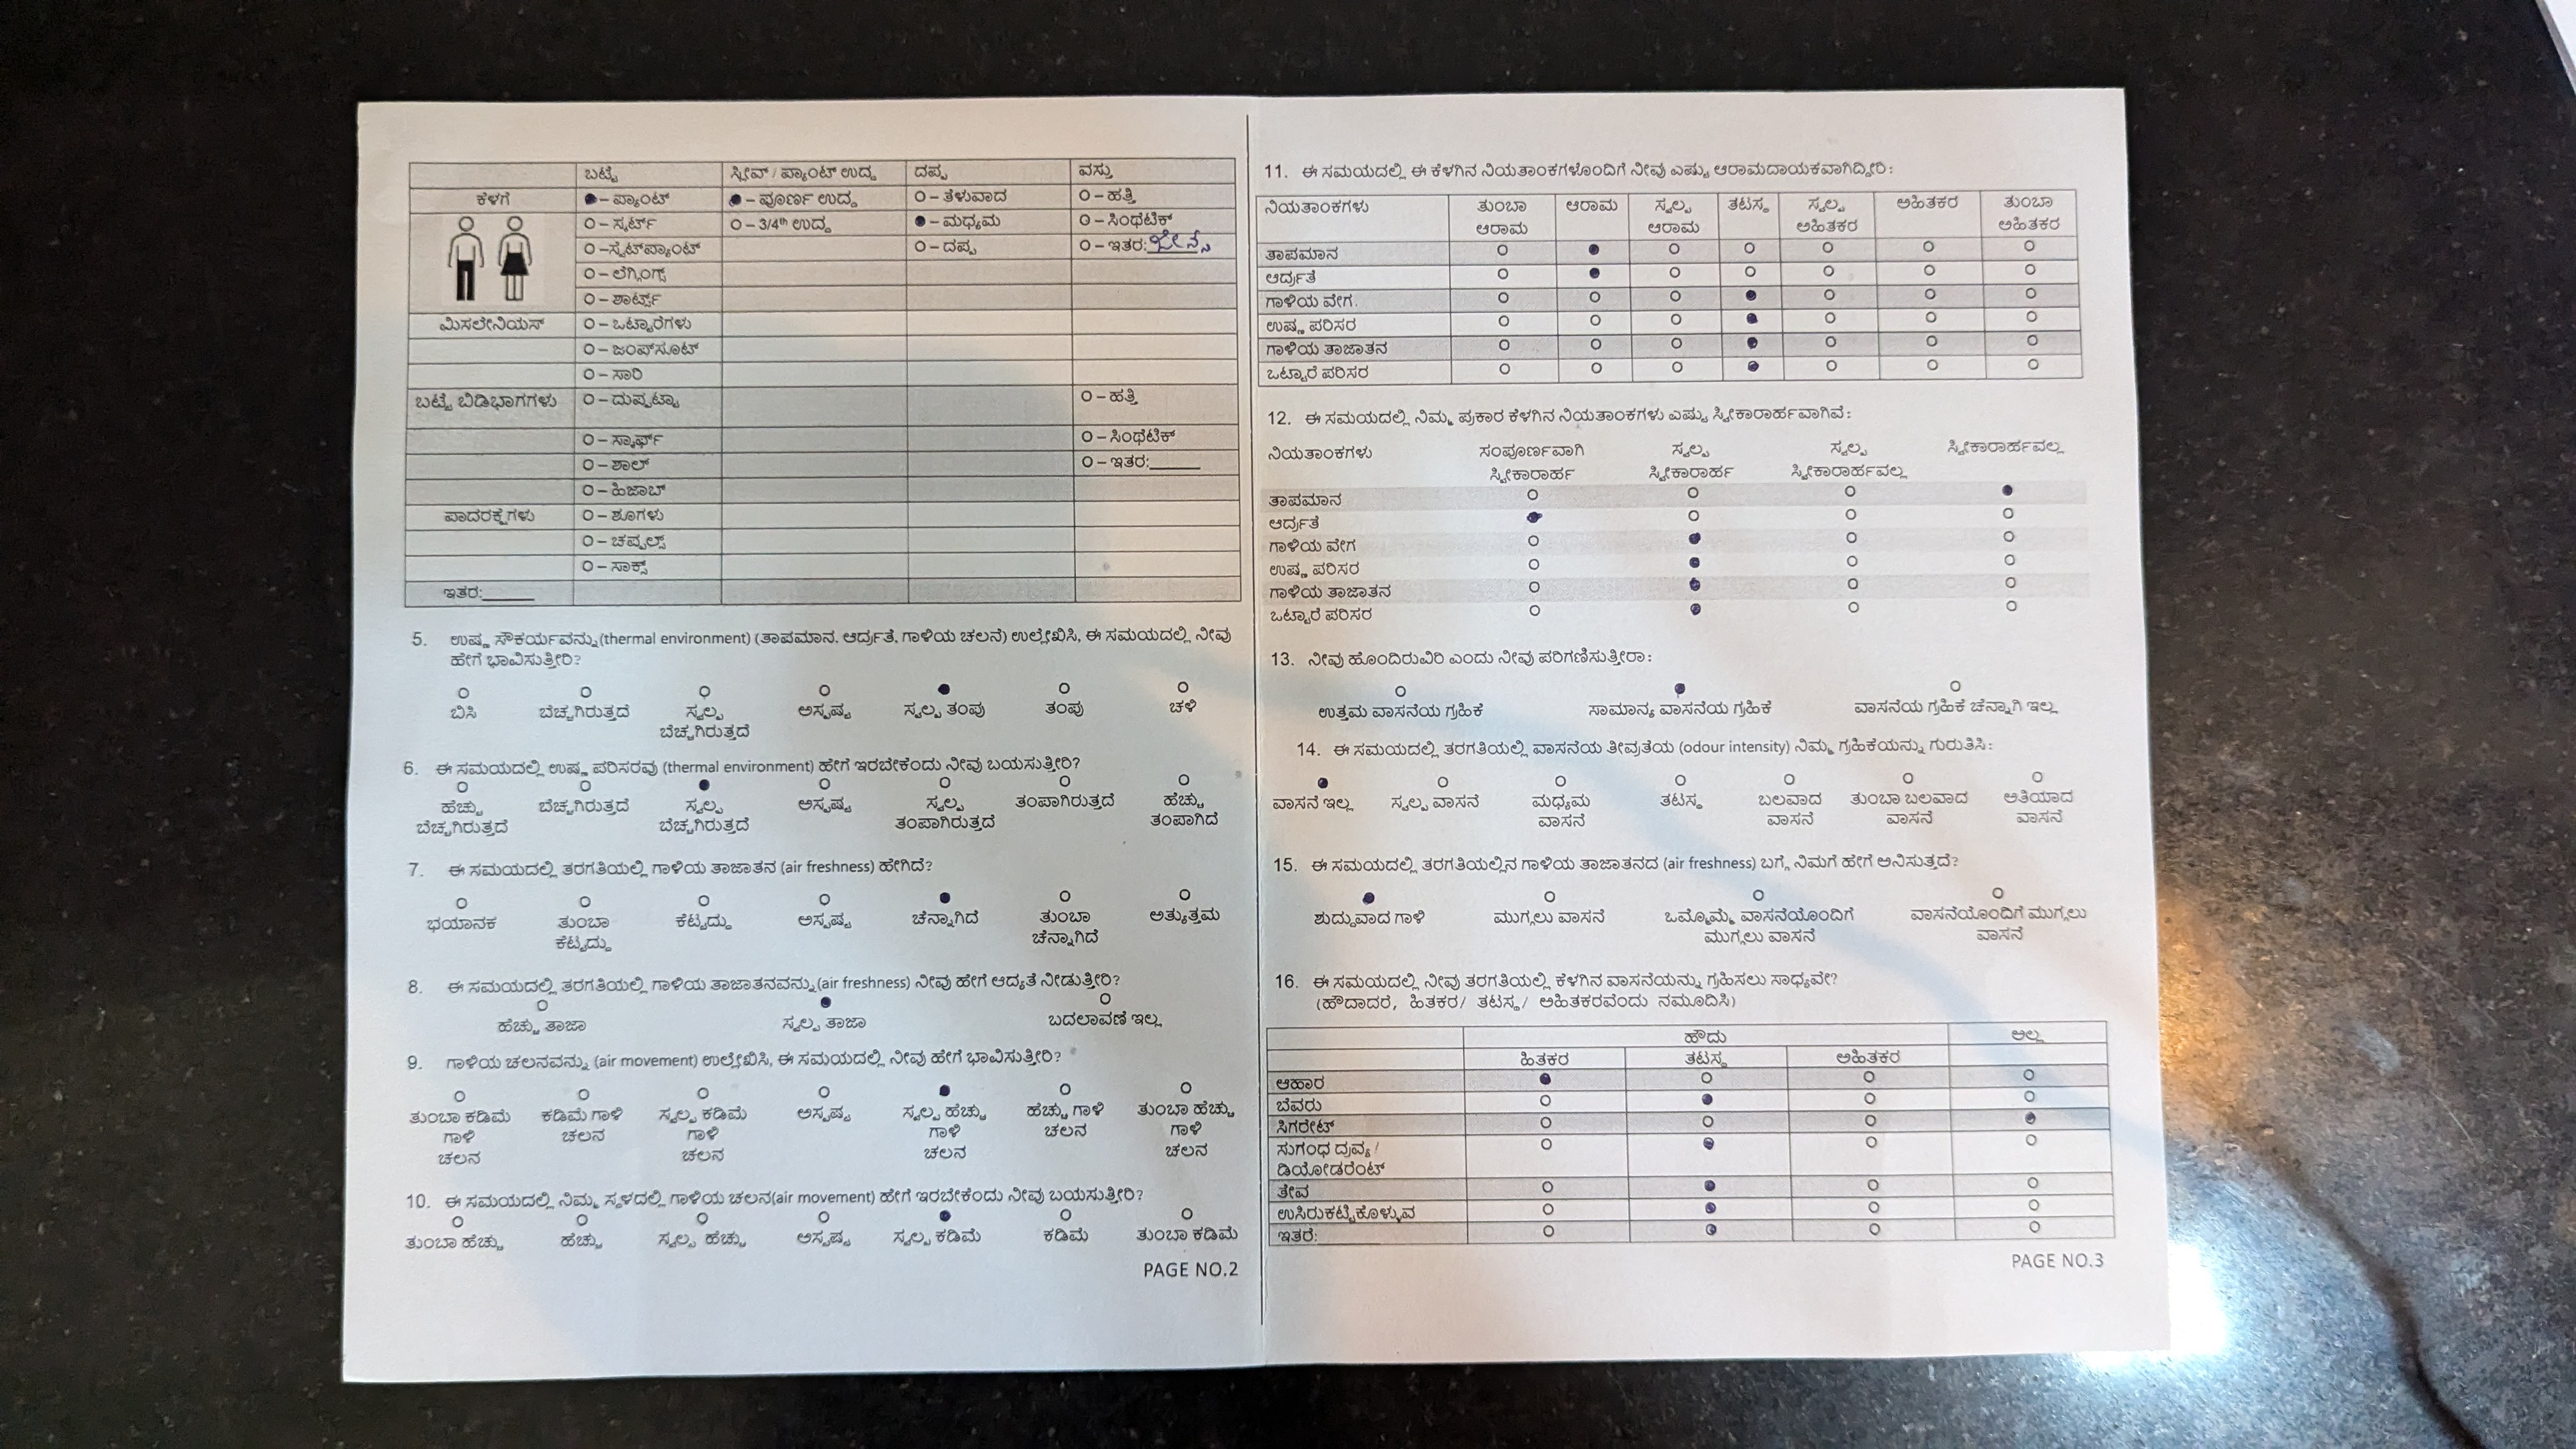 ಬಟ್ಟೆ ಸ್ಲೀವ್ / ಪ್ಯಾಂಟ್ ಉದ್ದ ದಪ್ಪ ವಸ್ತು
ಕೆಳಗೆ ●– ಪ್ಯಾಂಟ್ ●– ಪೂರ್ಣ ಉದ್ದ O – ತೆಳುವಾದ O – ಹತ್ತಿ
O – ಸ್ಕರ್ಟ್ O – 3/4th ಉದ್ದ ●– ಮಧ್ಯಮ O – ಸಿಂಥೆಟಿಕ್
O –ಸ್ವೆಟ್‌ಪ್ಯಾಂಟ್ O – ದಪ್ಪ O – ಇತರ: ಜೀನ್ಸ್
O – ಲೆಗ್ಗಿಂಗ್ಸ್
O – ಶಾರ್ಟ್ಸ್
ಮಿಸಲೇನಿಯಸ್ O – ಒಟ್ಟಾರೆಗಳು
O – ಜಂಪ್‌ಸೂಟ್
O – ಸಾರಿ
ಬಟ್ಟೆ ಬಿಡಿಭಾಗಗಳು O – ದುಪ್ಪಟ್ಟಾ O – ಹತ್ತಿ
O – ಸ್ಕಾರ್ಫ್ O – ಸಿಂಥೆಟಿಕ್
O – ಶಾಲ್ O – ಇತರ:______
O – ಹಿಜಾಬ್
ಪಾದರಕ್ಷೆಗಳು O – ಶೂಗಳು
O – ಚಪ್ಪಲ್ಸ್
O – ಸಾಕ್ಸ್
ಇತರ:______
5. ಉಷ್ಣ ಸೌಕರ್ಯವನ್ನು(thermal environment) (ತಾಪಮಾನ, ಆರ್ದ್ರತೆ, ಗಾಳಿಯ ಚಲನೆ) ಉಲ್ಲೇಖಿಸಿ, ಈ ಸಮಯದಲ್ಲಿ ನೀವು
ಹೇಗೆ ಭಾವಿಸುತ್ತೀರಿ?
O O O O ● O O
ಬಿಸಿ ಬೆಚ್ಚಗಿರುತ್ತದೆ ಸ್ವಲ್ಪ ಅಸ್ಪಷ್ಟ ಸ್ವಲ್ಪ ತಂಪು ತಂಪು ಚಳಿ
ಬೆಚ್ಚಗಿರುತ್ತದೆ
6. ಈ ಸಮಯದಲ್ಲಿ ಉಷ್ಣ ಪರಿಸರವು (thermal environment) ಹೇಗೆ ಇರಬೇಕೆಂದು ನೀವು ಬಯಸುತ್ತೀರಿ?
O O ● O O O O
ಹೆಚ್ಚು ಬೆಚ್ಚಗಿರುತ್ತದೆ ಸ್ವಲ್ಪ ಅಸ್ಪಷ್ಟ ಸ್ವಲ್ಪ ತಂಪಾಗಿರುತ್ತದೆ ಹೆಚ್ಚು
ಬೆಚ್ಚಗಿರುತ್ತದೆ ಬೆಚ್ಚಗಿರುತ್ತದೆ ತಂಪಾಗಿರುತ್ತದೆ ತಂಪಾಗಿದೆ
7. ಈ ಸಮಯದಲ್ಲಿ ತರಗತಿಯಲ್ಲಿ ಗಾಳಿಯ ತಾಜಾತನ (air freshness) ಹೇಗಿದೆ?
O O O O ● O O
ಭಯಾನಕ ತುಂಬಾ ಕೆಟ್ಟದ್ದು ಅಸ್ಪಷ್ಟ ಚೆನ್ನಾಗಿದೆ ತುಂಬಾ ಅತ್ಯುತ್ತಮ
ಕೆಟ್ಟದ್ದು ಚೆನ್ನಾಗಿದೆ
8. ಈ ಸಮಯದಲ್ಲಿ ತರಗತಿಯಲ್ಲಿ ಗಾಳಿಯ ತಾಜಾತನವನ್ನು(air freshness) ನೀವು ಹೇಗೆ ಆದ್ಯತೆ ನೀಡುತ್ತೀರಿ?
O ● O
ಹೆಚ್ಚು ತಾಜಾ ಸ್ವಲ್ಪ ತಾಜಾ ಬದಲಾವಣೆ ಇಲ್ಲ
9. ಗಾಳಿಯ ಚಲನವನ್ನು (air movement) ಉಲ್ಲೇಖಿಸಿ, ಈ ಸಮಯದಲ್ಲಿ ನೀವು ಹೇಗೆ ಭಾವಿಸುತ್ತೀರಿ?
O O O O ● O O
ತುಂಬಾ ಕಡಿಮೆ ಕಡಿಮೆ ಗಾಳಿ ಸ್ವಲ್ಪ ಕಡಿಮೆ ಅಸ್ಪಷ್ಟ ಸ್ವಲ್ಪ ಹೆಚ್ಚು ಹೆಚ್ಚು ಗಾಳಿ ತುಂಬಾ ಹೆಚ್ಚು
ಗಾಳಿ ಚಲನ ಗಾಳಿ ಗಾಳಿ ಚಲನ ಗಾಳಿ
ಚಲನ ಚಲನ ಚಲನ ಚಲನ
10. ಈ ಸಮಯದಲ್ಲಿ ನಿಮ್ಮ ಸ್ಥಳದಲ್ಲಿ ಗಾಳಿಯ ಚಲನ(air movement) ಹೇಗೆ ಇರಬೇಕೆಂದು ನೀವು ಬಯಸುತ್ತೀರಿ?
O O O O ● O O
ತುಂಬಾ ಹೆಚ್ಚು ಹೆಚ್ಚು ಸ್ವಲ್ಪ ಹೆಚ್ಚು ಅಸ್ಪಷ್ಟ ಸ್ವಲ್ಪ ಕಡಿಮೆ ಕಡಿಮೆ ತುಂಬಾ ಕಡಿಮೆ
PAGE NO.2
11. ಈ ಸಮಯದಲ್ಲಿ ಈ ಕೆಳಗಿನ ನಿಯತಾಂಕಗಳೊಂದಿಗೆ ನೀವು ಎಷ್ಟು ಆರಾಮದಾಯಕವಾಗಿದ್ದೀರಿ:
ನಿಯತಾಂಕಗಳು ತುಂಬಾ ಆರಾಮ ಸ್ವಲ್ಪ ತಟಸ್ಥ ಸ್ವಲ್ಪ ಅಹಿತಕರ ತುಂಬಾ
ಆರಾಮ ಆರಾಮ ಅಹಿತಕರ ಅಹಿತಕರ
ತಾಪಮಾನ O ● O O O O O
ಆರ್ದ್ರತೆ O ● O O O O O
ಗಾಳಿಯ ವೇಗ. O O O ● O O O
ಉಷ್ಣ ಪರಿಸರ O O O ● O O O
ಗಾಳಿಯ ತಾಜಾತನ O O O ● O O O
ಒಟ್ಟಾರೆ ಪರಿಸರ O O O ● O O O
12. ಈ ಸಮಯದಲ್ಲಿ ನಿಮ್ಮ ಪ್ರಕಾರ ಕೆಳಗಿನ ನಿಯತಾಂಕಗಳು ಎಷ್ಟು ಸ್ವೀಕಾರಾರ್ಹವಾಗಿವೆ:
ನಿಯತಾಂಕಗಳು ಸಂಪೂರ್ಣವಾಗಿ ಸ್ವಲ್ಪ ಸ್ವಲ್ಪ ಸ್ವೀಕಾರಾರ್ಹವಲ್ಲ
ಸ್ವೀಕಾರಾರ್ಹ ಸ್ವೀಕಾರಾರ್ಹ ಸ್ವೀಕಾರಾರ್ಹವಲ್ಲ
ತಾಪಮಾನ O O O ●
ಆರ್ದ್ರತೆ ● O O O
ಗಾಳಿಯ ವೇಗ O ● O O
ಉಷ್ಣ ಪರಿಸರ O ● O O
ಗಾಳಿಯ ತಾಜಾತನ O ● O O
ಒಟ್ಟಾರೆ ಪರಿಸರ O ● O O
13. ನೀವು ಹೊಂದಿರುವಿರಿ ಎಂದು ನೀವು ಪರಿಗಣಿಸುತ್ತೀರಾ:
O ● O
ಉತ್ತಮ ವಾಸನೆಯ ಗ್ರಹಿಕೆ ಸಾಮಾನ್ಯ ವಾಸನೆಯ ಗ್ರಹಿಕೆ ವಾಸನೆಯ ಗ್ರಹಿಕೆ ಚೆನ್ನಾಗಿ ಇಲ್ಲ
14. ಈ ಸಮಯದಲ್ಲಿ ತರಗತಿಯಲ್ಲಿ ವಾಸನೆಯ ತೀವ್ರತೆಯ (odour intensity) ನಿಮ್ಮ ಗ್ರಹಿಕೆಯನ್ನು ಗುರುತಿಸಿ:
● O O O O O O
ವಾಸನೆ ಇಲ್ಲ ಸ್ವಲ್ಪ ವಾಸನೆ ಮಧ್ಯಮ ತಟಸ್ಥ ಬಲವಾದ ತುಂಬಾ ಬಲವಾದ ಅತಿಯಾದ
ವಾಸನೆ ವಾಸನೆ ವಾಸನೆ ವಾಸನೆ
15. ಈ ಸಮಯದಲ್ಲಿ ತರಗತಿಯಲ್ಲಿನ ಗಾಳಿಯ ತಾಜಾತನದ (air freshness) ಬಗ್ಗೆ ನಿಮಗೆ ಹೇಗೆ ಅನಿಸುತ್ತದೆ?
● O O O
ಶುದ್ದುವಾದ ಗಾಳಿ ಮುಗ್ಗಲು ವಾಸನೆ ಒಮ್ಮೊಮ್ಮೆ ವಾಸನೆಯೊಂದಿಗೆ ವಾಸನೆಯೊಂದಿಗೆ ಮುಗ್ಗಲು
ಮುಗ್ಗಲು ವಾಸನೆ ವಾಸನೆ
16. ಈ ಸಮಯದಲ್ಲಿ ನೀವು ತರಗತಿಯಲ್ಲಿ ಕೆಳಗಿನ ವಾಸನೆಯನ್ನು ಗ್ರಹಿಸಲು ಸಾಧ್ಯವೇ?
(ಹೌದಾದರೆ, ಹಿತಕರ/ ತಟಸ್ಥ/ ಅಹಿತಕರವೆಂದು ನಮೂದಿಸಿ)
ಹೌದು ಅಲ್ಲ
ಹಿತಕರ ತಟಸ್ಥ ಅಹಿತಕರ
ಆಹಾರ ● O O O
ಬೆವರು O ● O O
ಸಿಗರೇಟ್ O O O ●
ಸುಗಂಧ ದ್ರವ್ಯ/ O ● O O
ಡಿಯೋಡರೆಂಟ್
ತೇವ O ● O O
ಉಸಿರುಕಟ್ಟಿಕೊಳ್ಳುವ O ● O O
ಇತರೆ: O ● O O
PAGE NO.3